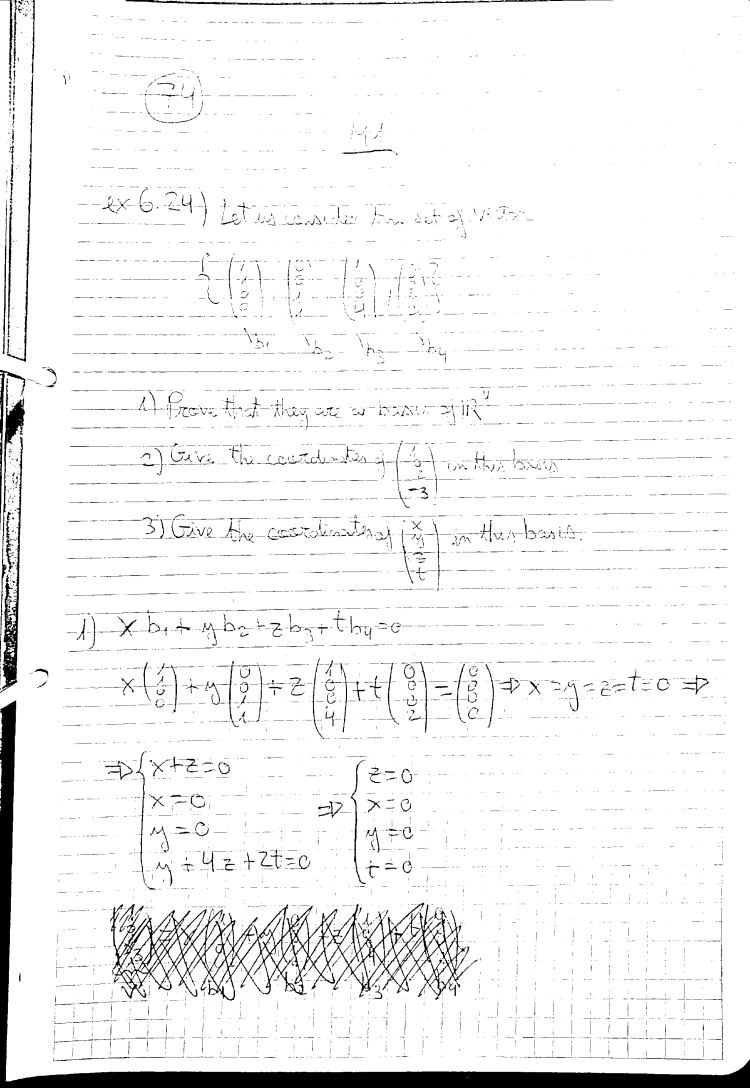 74
M1
ex 6.24) Let us consider the set of vector
{ (1 1 0 0) (0 0 1 1) (1 0 0 4) ,
b1 b2 b3 b4
1) Prove that they are a basis of ℝ⁴
2) Give the coordinates of ( -3) in this basis
3) Give the coordinates of (x y z t) in this basis.
1) x b1 + y b2 + z b3 + t b4 = 0
x (1 1 0 0) + y (0 0 1 1) + z (1 0 0 4) + t (0 0 0 2) = (0 0 0 0) ⇒ x = y = z = t = 0 ⇒
⇒ { x + z = 0 ⇒ { z = 0
x = 0 x = 0
y = 0 y = 0
y + 4z + 2t = 0 t = 0